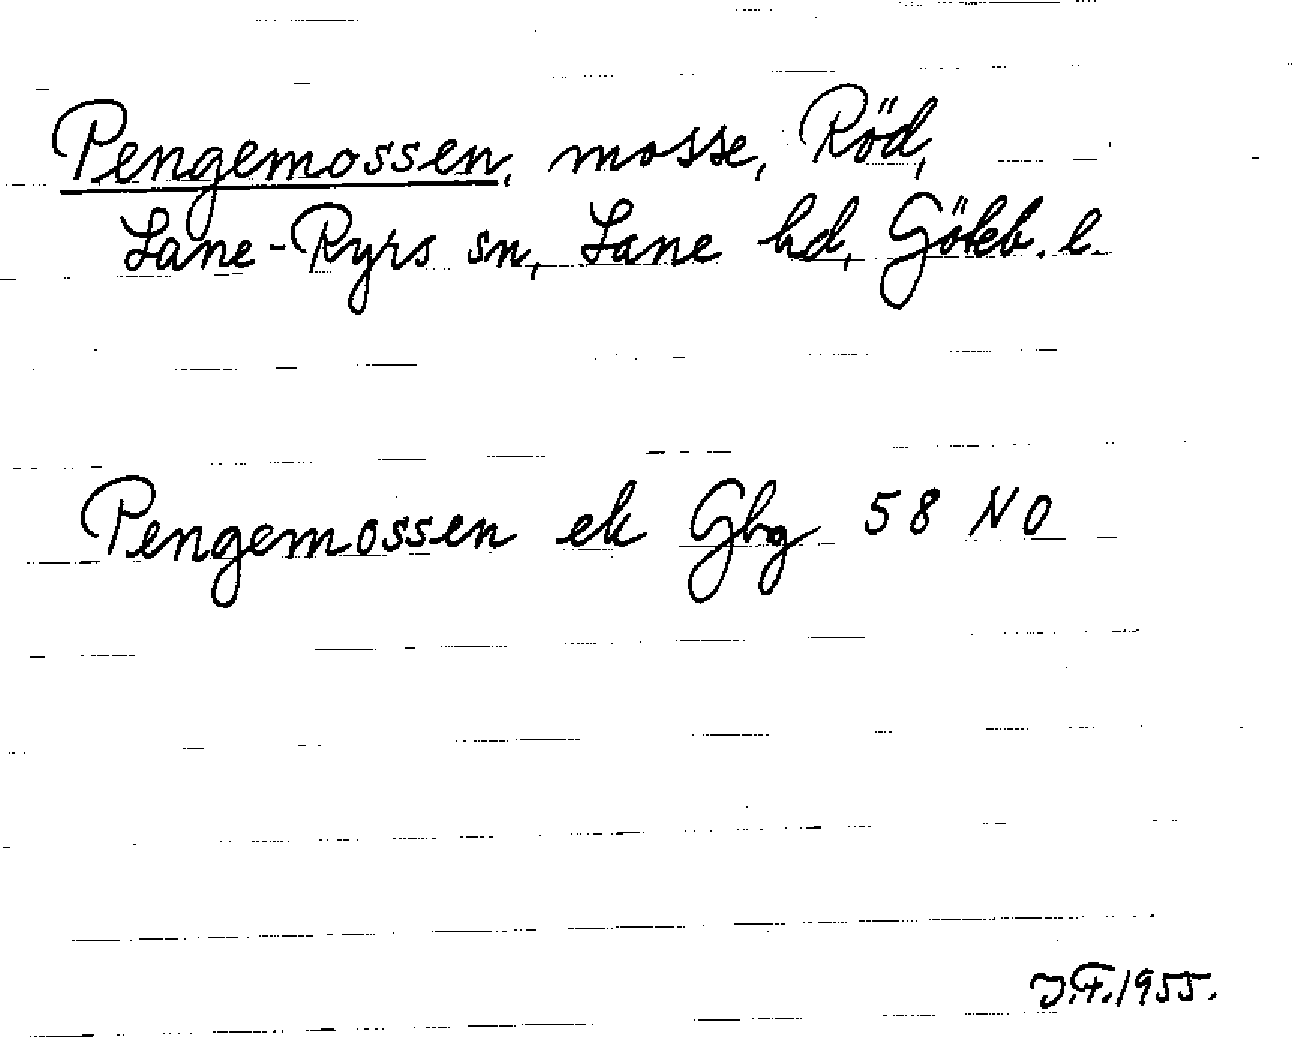 Pengemossen, mosse, Röd,
Lane-Ryrs sn, Lane hd, Gökb. l.
Pengemossen ek Gbg 58 NO
J.F. 1955.